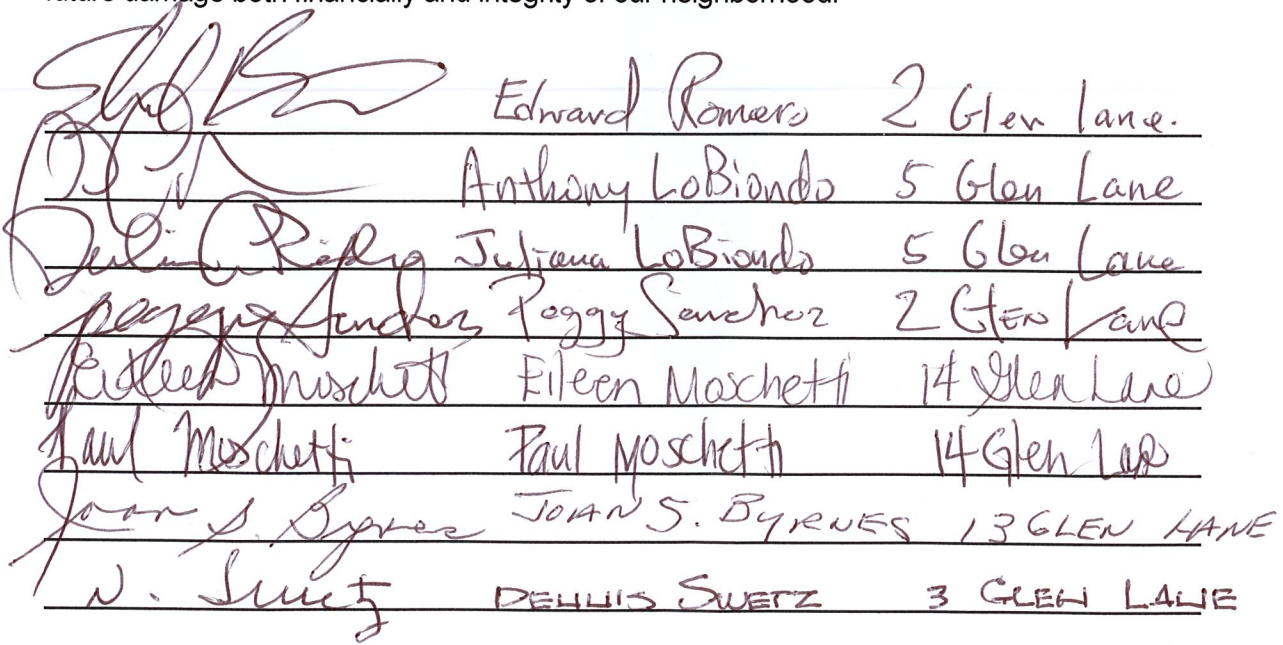 future damage both financially and integrity of our neighborhood.
Edward Romero 2 Glen lane.
Anthony LoBiondo 5 Glen Lane
Juliana LoBiondo 5 Glen Lane
peggy Sanchez Peggy Sanchez 2 GLEN Lane
Eileen Moschetti Eileen Moschetti 14 Glen Lane
Paul Moschetti Paul Moschetti 14 Glen Lane
Joan S. Byrnes JOAN S. BYRNES 13 GLEN LANE
D. Swetz DENNIS SWETZ 3 GLEN LANE